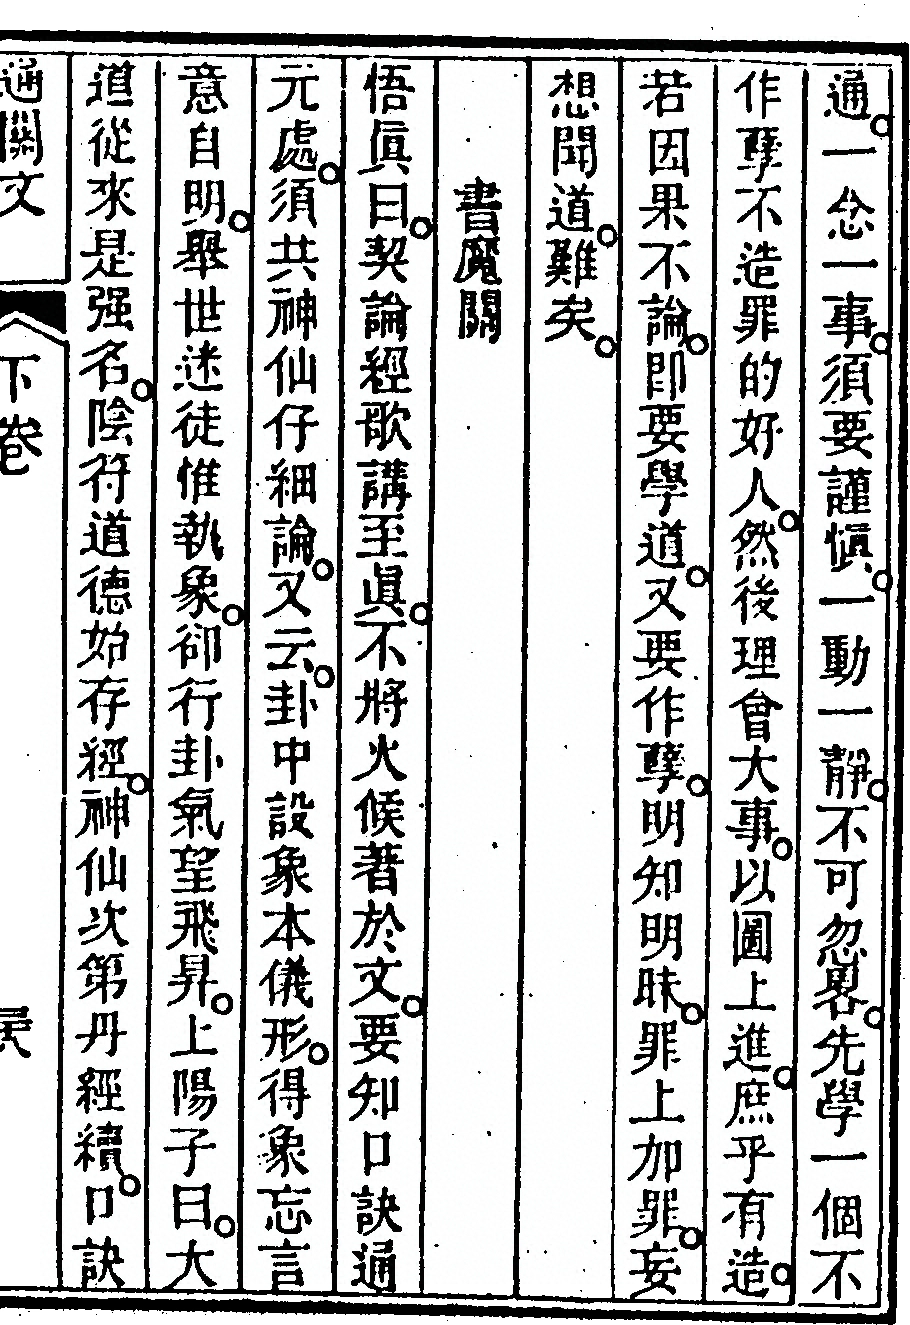 通。一念一事。須要謹愼。一動一靜。不可忽畧。先學一個不
作孽不造罪的好人。然後理會大事。以圖上進。庶乎有造。
若因果不論。卽要學道。又要作孽。明知明昧。罪上加罪。妄
想聞道。難矣。
書魔關
悟眞曰。契論經歌講至眞。不將火候著於文。要知口訣通
元處。須共神仙仔細論。又云。卦中設象本儀形。得象忘言
意自明。舉世迷徒惟執象。卻行卦氣望飛昇。上陽子曰。大
道從來是强名。陰符道德始存經。神仙次第丹經續。口訣
通關文
下卷